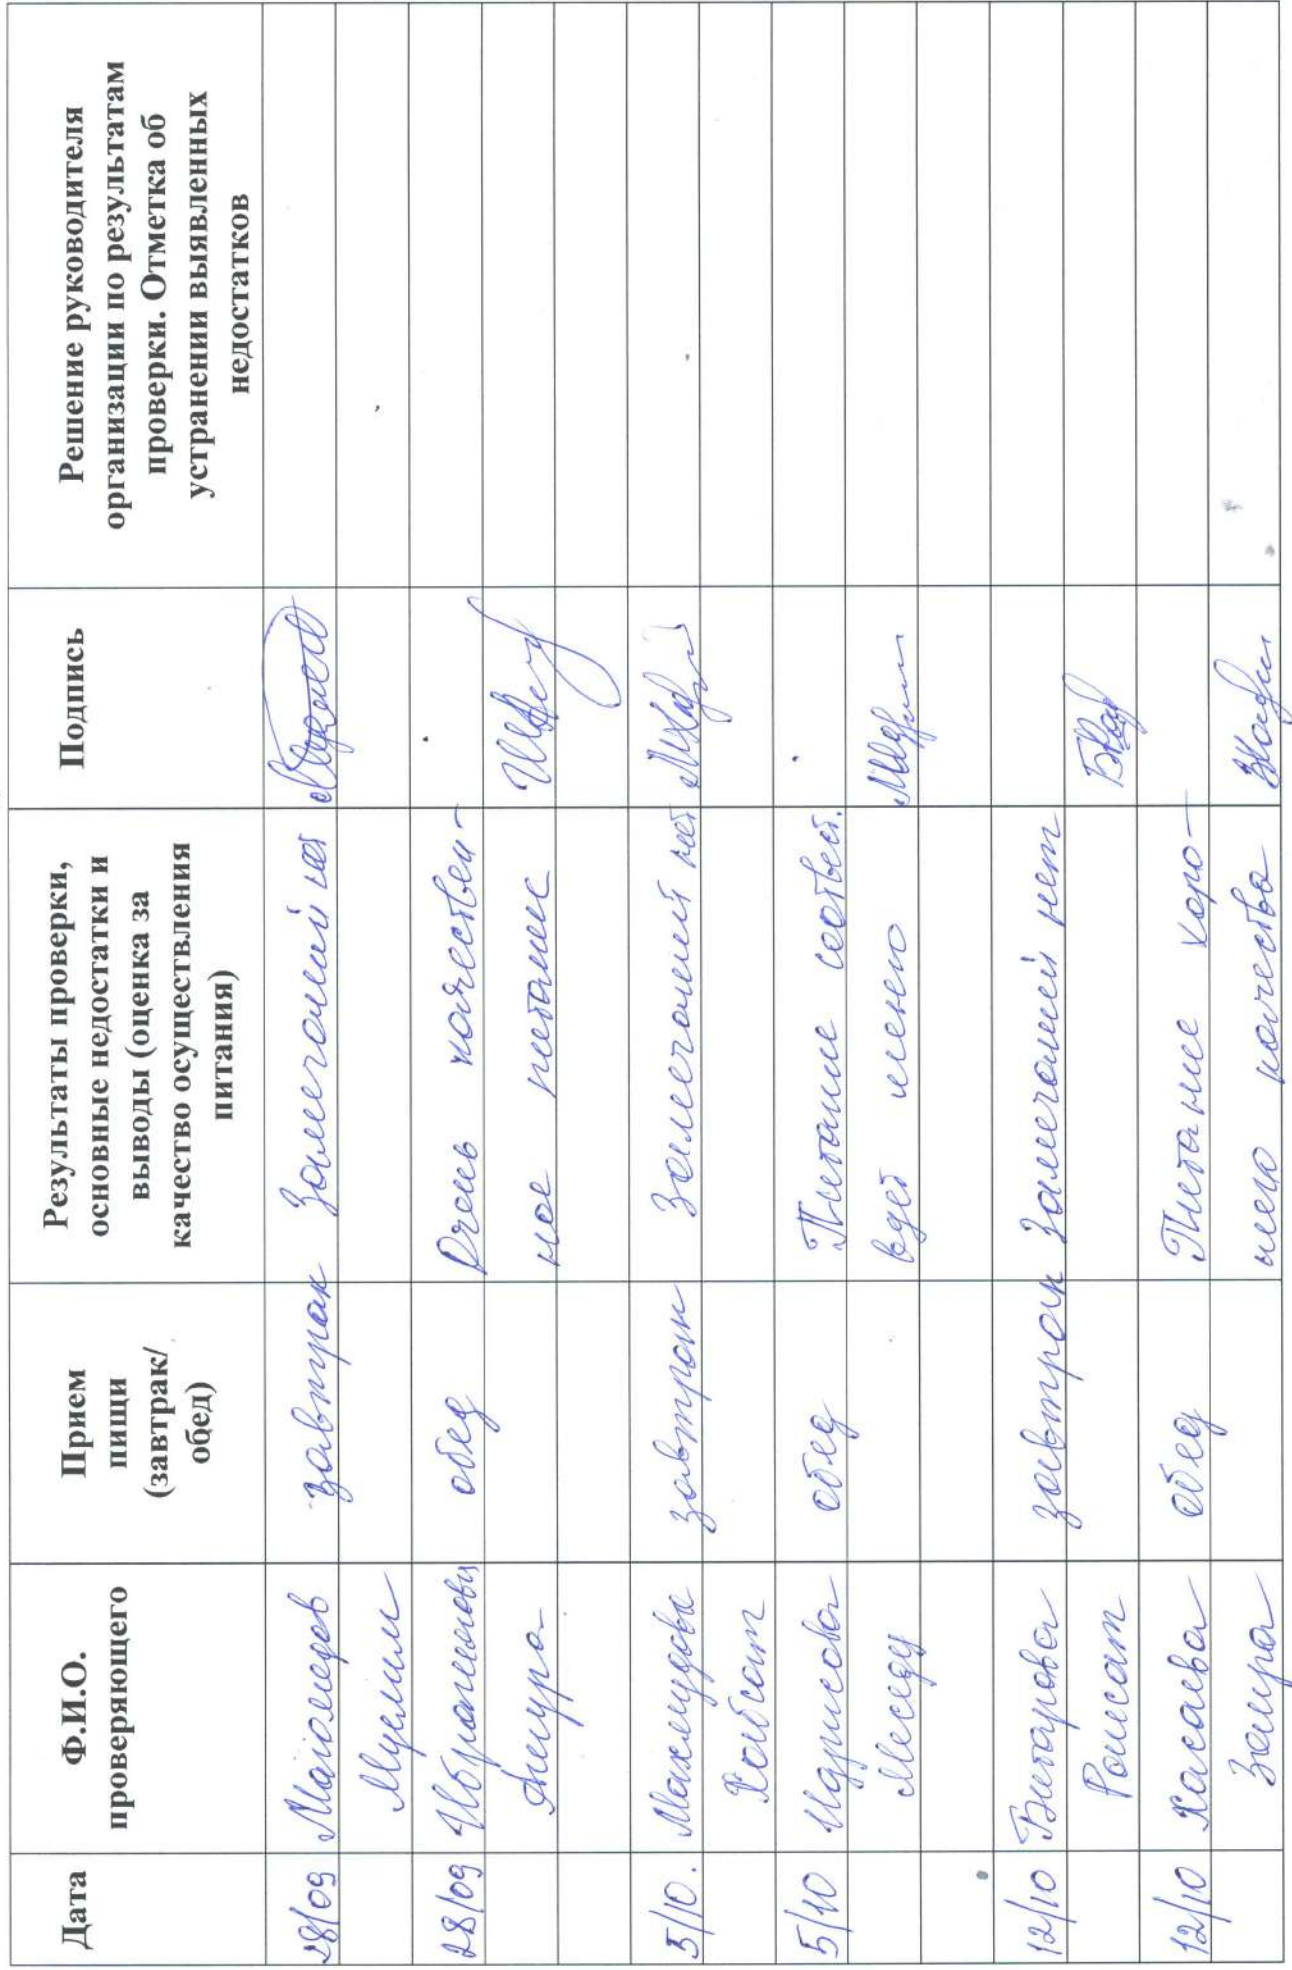 Дата
Ф.И.О.
проверяющего
Прием
пищи
(завтрак/
обед)
Результаты проверки,
основные недостатки и
выводы (оценка за
качество осуществления
питания)
Подпись
Решение руководителя
организации по результатам
проверки. Отметка об
устранении выявленных
недостатков
28/09 Магомедов завтрак Замечаний нет
Муслим
28/09 обед Очень качествен-
ное питание
5/10. Махмудова завтрак Замечаний нет
5/10 Идрисова обед Питание соответ.
Меседу
12/10 завтрак Замечаний нет
12/10 Хасаева обед Питание хоро-
Заира качества